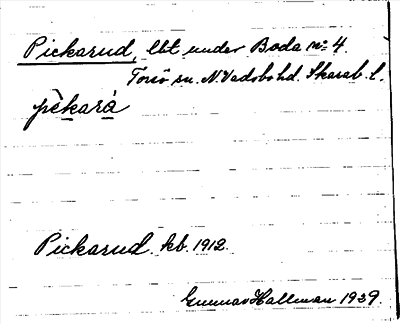 Pickarud, lht under Boda nr 4.
Torsö sn. N. Vadsbo hd. Skarab. l.
pɛ̀kará
Pickarud. kb. 1912.
Gunnar Hallman 1939.